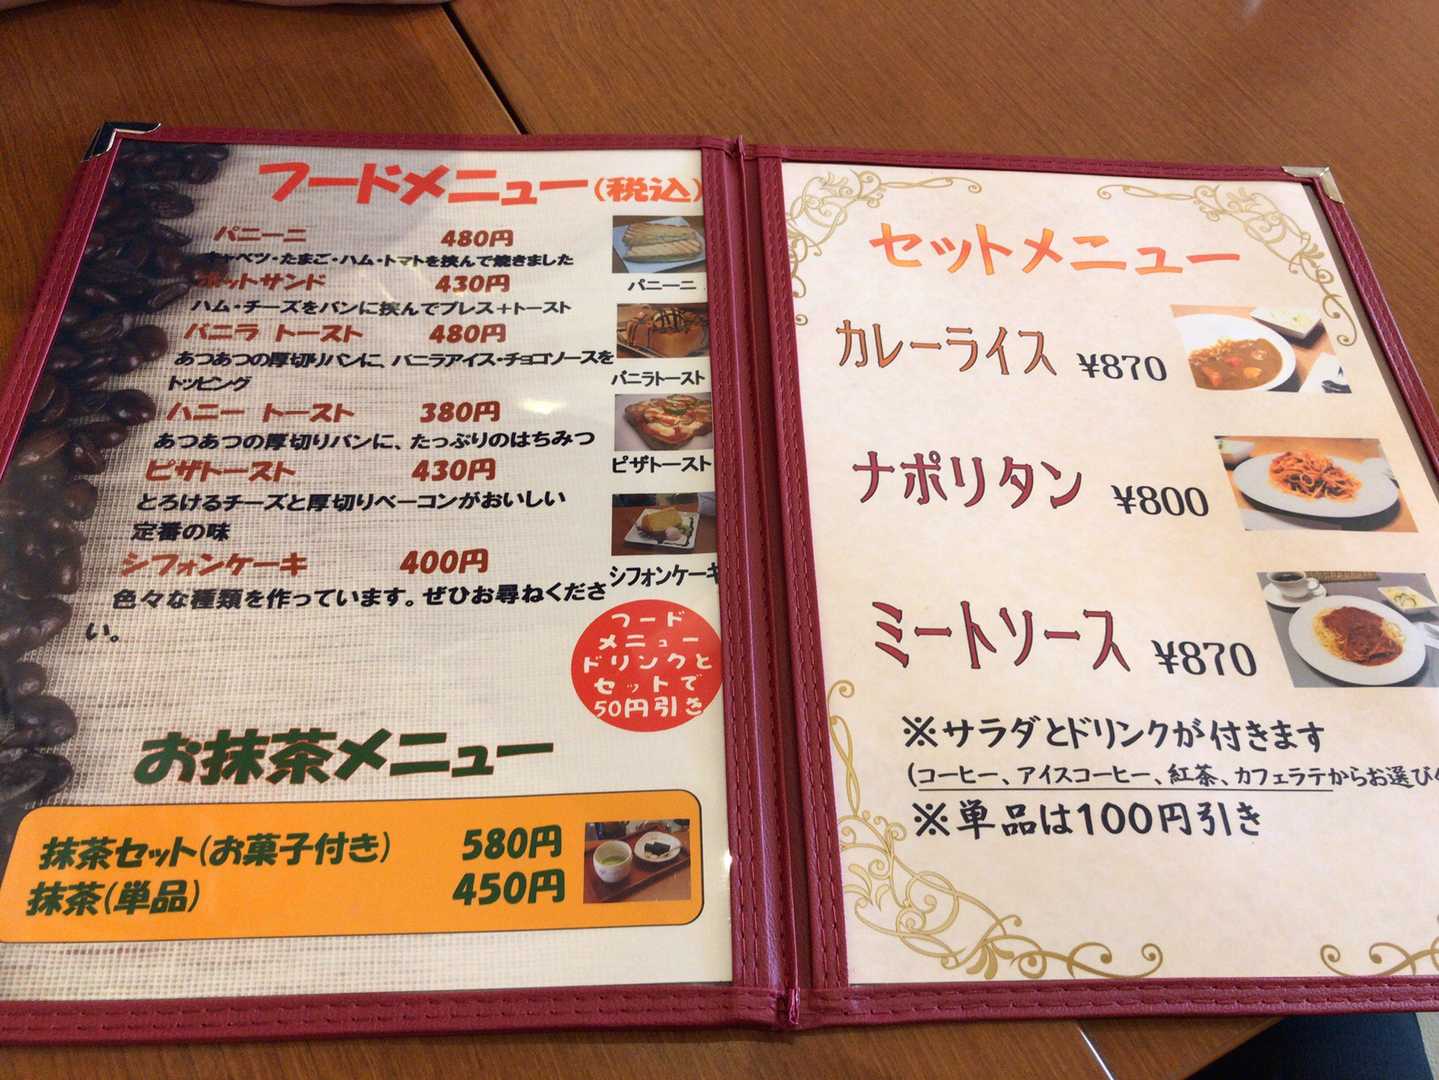 フードメニュー(税込)
パニーニ 480円
キャベツ・たまご・ハム・トマトを挟んで焼きました
ホットサンド 430円
ハム・チーズをパンに挟んでプレス+トースト
バニラ トースト 480円
あつあつの厚切りパンに、バニラアイス・チョコソースを
トッピング
ハニー トースト 380円
あつあつの厚切りパンに、たっぷりのはちみつ
ピザトースト 430円
とろけるチーズと厚切りベーコンがおいしい
定番の味
シフォンケーキ 400円
色々な種類を作っています。ぜひお尋ねくださ
い。
パニーニ
バニラトースト
ピザトースト
シフォンケーキ
フード
メニュー
ドリンクと
セットで
50円引き
お抹茶メニュー
抹茶セット(お菓子付き) 580円
抹茶(単品) 450円
セットメニュー
カレーライス ¥870
ナポリタン ¥800
ミートソース ¥870
※サラダとドリンクが付きます
(コーヒー、アイスコーヒー、紅茶、カフェラテからお選び
※単品は100円引き